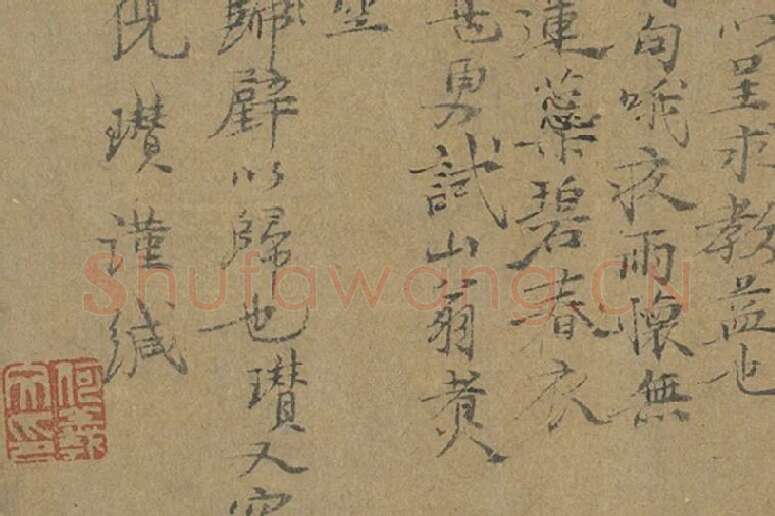 以呈求教益也
句哦夜雨懷無
連蕊碧春衣
男試山翁煑
坐
歸辟以歸也瓚又
倪瓚謹緘
Shufawang.CN